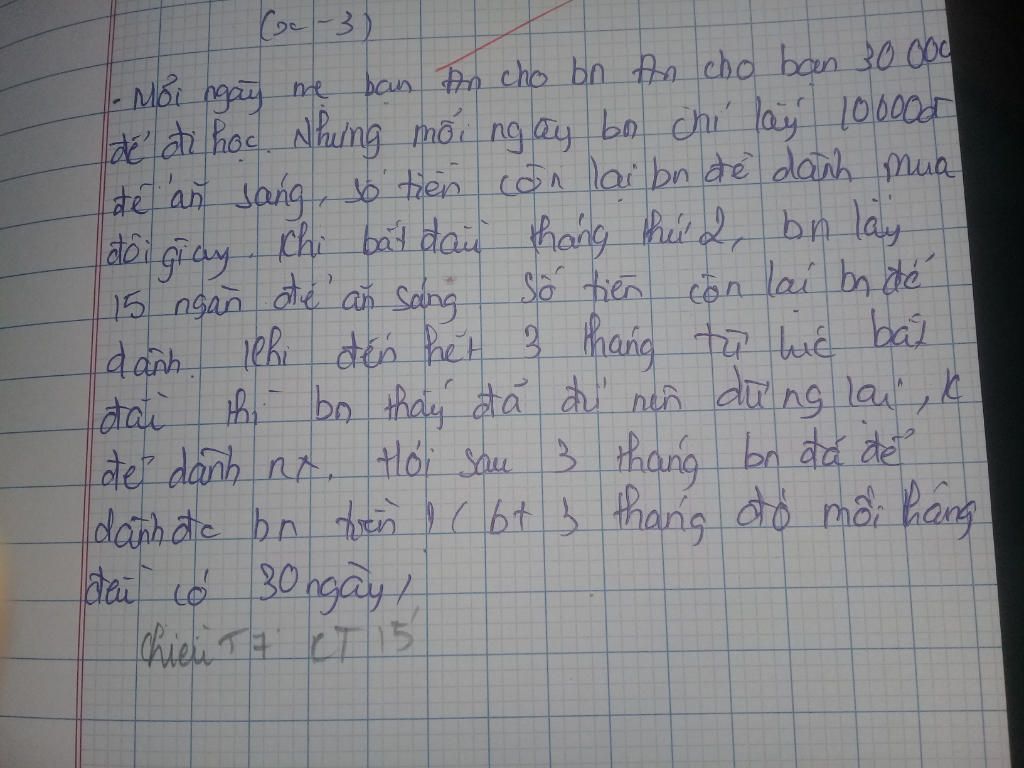 (x - 3)
- Mỗi ngày mẹ bạn An cho bn An cho bạn 30 000
để đi học. Nhưng mỗi ngày bn chỉ lấy 10000đ
để ăn sáng, số tiền còn lại bn để dành mua
đôi giày. Khi bắt đầu tháng thứ 2, bn lấy
15 ngàn để ăn sáng số tiền còn lại bn để
dành. Khi đến hết 3 tháng từ lúc bắt
đầu thì bn thấy đã đủ nên dừng lại, k
để dành nx. Hỏi sau 3 tháng bn đã để
dành đc bn tiền ? (bt 3 tháng đó mỗi tháng
đều có 30 ngày)
Chiều T7 CT 15